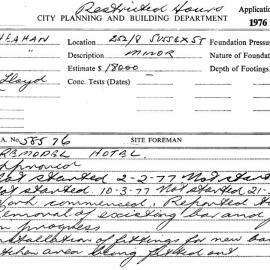 Restricted Hours
CITY PLANNING AND BUILDING DEPARTMENT Application
1976
LEAHAN Location 252/8 SUSSEX ST Foundation Pressure
Description MINOR Nature of Foundat
Estimate $ 18000 Depth of Footings
Lloyd Conc. Tests (Dates)
A. No. 585 76 SITE FOREMAN
REMODEL HOTEL
Approved
Not started 2-2-77 Not start
Not started. 10-3-77 Not started 21-
Work commenced. Reported
Removal of existing bar and
in progress
Installation of fittings for new bar
Kitchen area being fitted out